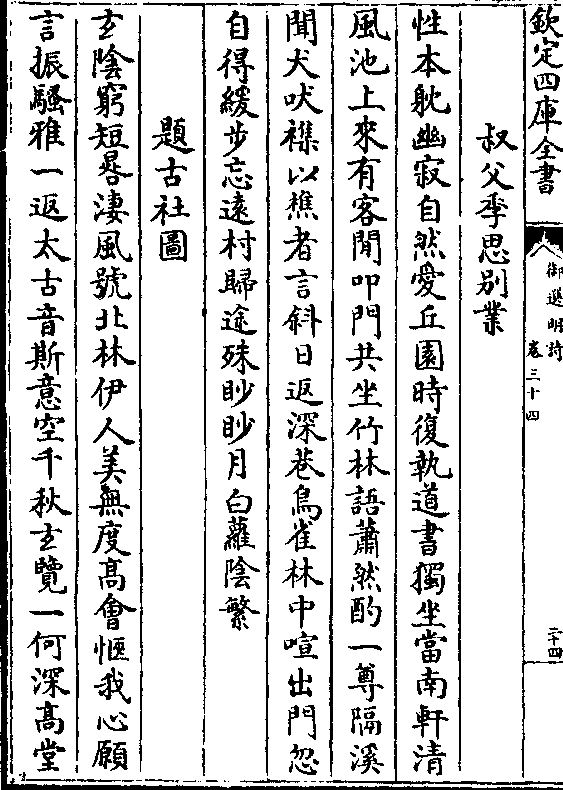 欽定四庫全書
御選明詩
卷三十四
二十四
叔父季思別業
性本躭幽寂自然愛丘園時復執道書獨坐當南軒清
風池上來有客閒叩門共坐竹林語蕭然酌一尊隔溪
聞犬吠襍以樵者言斜日返深巷鳥雀林中喧出門忽
自得緩步忘遠村歸途殊眇眇月白蘿陰繁
題古社圖
玄陰窮短晷淒風號北林伊人美無度高會愜我心願
言振騷雅一返太古音斯意空千秋玄覽一何深高堂